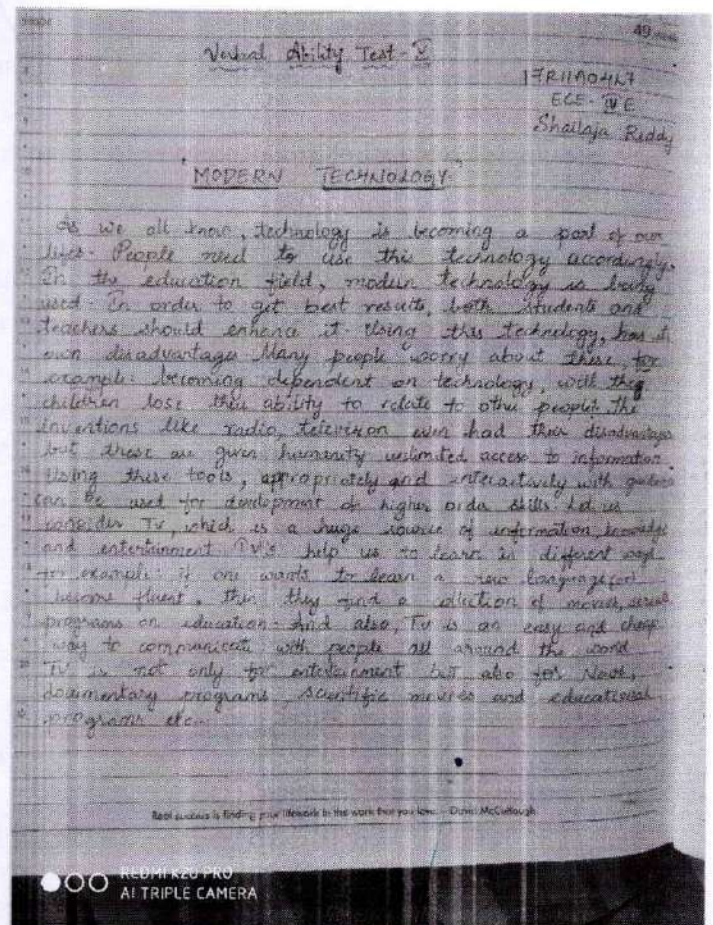 49
Verbal Ability Test - V
17R11A04L7
ECE - IV E
Shailaja Reddy
"MODERN TECHNOLOGY"
As we all know, technology is becoming a part of our
lives. People need to use this technology accordingly.
In the education field, modern technology is being
used. In order to get best results, both students and
teachers should enhance it. Using this technology, has it
own disadvantages Many people worry about these, for
example: becoming dependent on technology, with they
children lose their ability to relate to other people. The
inventions like radio, television even had their disadvantages
but these are given humanity unlimited access to information.
Using these tools, appropriately and interactively with
can be used for development of higher order skills. Let us
consider TV, which is a huge source of information, knowledge
and entertainment. TV's help us to learn in different ways
for example: if one wants to learn a new language
become fluent, then they find a collection of movies, serial
programs on education. And also, TV is an easy and cheap
way to communicate with people all around the world
TV is not only for entertainment but also for News,
documentary programs, scientific movies and educational
programs etc.
Real success is finding your lifework in the work that you love. - David McCullough
REDMI K20 PRO
AI TRIPLE CAMERA